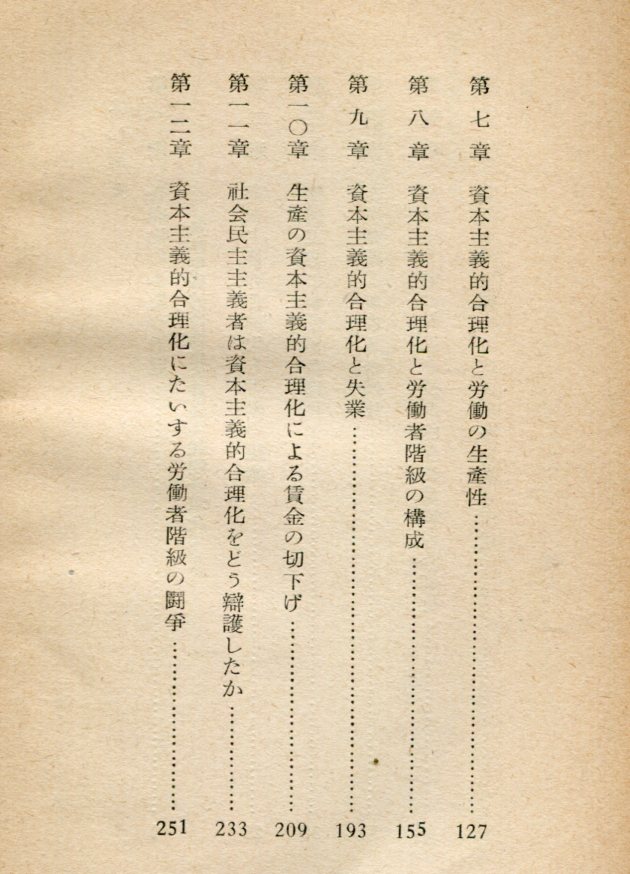 第七章　資本主義的合理化と労働の生産性……………………127
第八章　資本主義的合理化と労働者階級の構成……………………155
第九章　資本主義的合理化と失業……………………193
第一〇章　生産の資本主義的合理化による賃金の切下げ……………………209
第一一章　社会民主主義者は資本主義的合理化をどう辯護したか……………………233
第一二章　資本主義的合理化にたいする労働者階級の闘爭……………………251